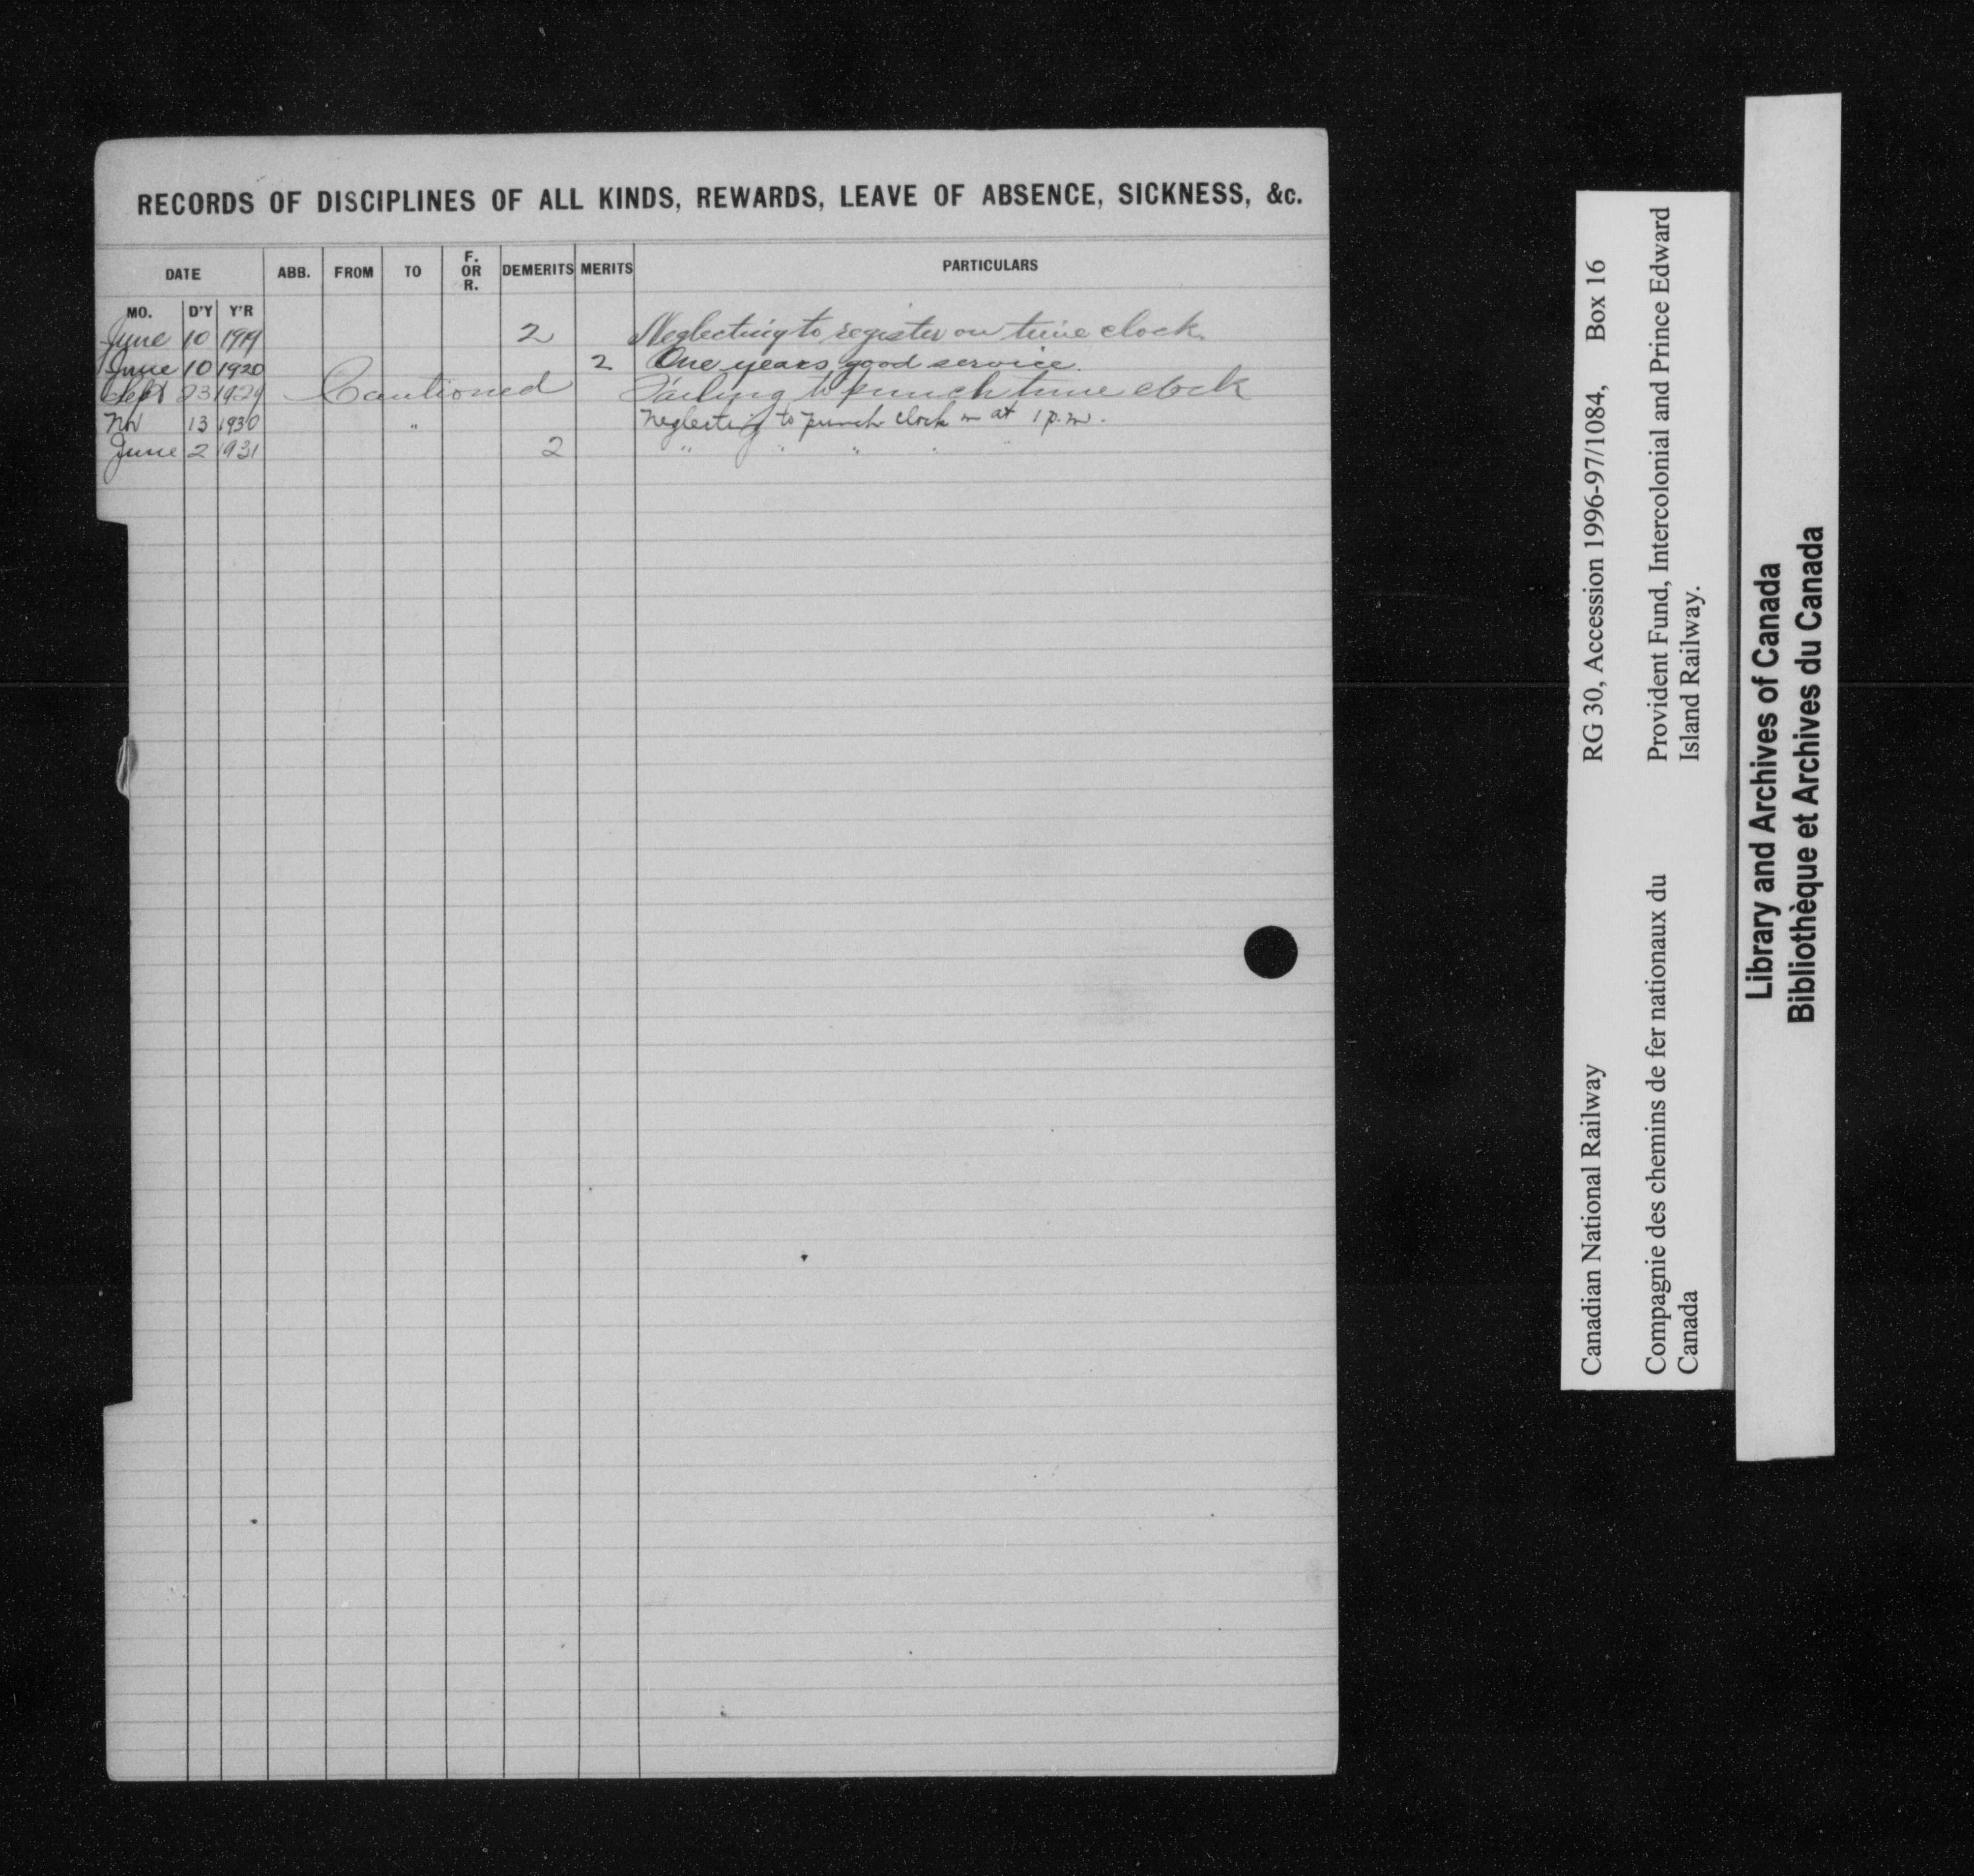 RECORDS OF DISCIPLINES OF ALL KINDS, REWARDS, LEAVE OF ABSENCE, SICKNESS, &c.
DATE ABB. FROM TO F. OR R. DEMERITS MERITS PARTICULARS
MO. D'Y Y'R
June 10 1919 2 Neglecting to register on time clock
June 10 1920 2 One years good service.
Sept 23 1929 Cautioned Failing to punch time clock
Nov 13 1930 " Neglecting to punch clock in at 1 p.m.
June 2 1931 2 " " " "
Canadian National Railway RG 30, Accession 1996-97/1084, Box 16
Compagnie des chemins de fer nationaux du Provident Fund, Intercolonial and Prince Edward
Canada Island Railway.
Library and Archives of Canada
Bibliothèque et Archives du Canada